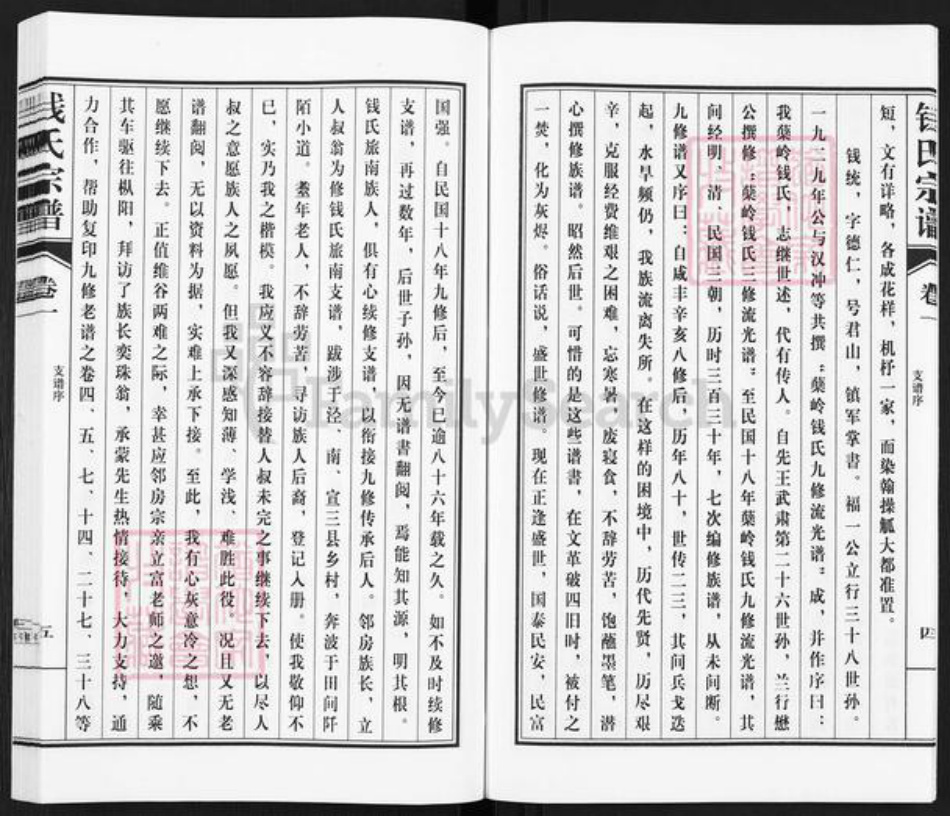 钱氏宗谱
卷一
支谱序
四
短，文有详略，各成花样，机杼一家，而染翰操觚大都准置。
钱统，字德仁，号君山，镇军掌書。福一公立行三十八世孙。
一九二九年公与汉冲等共撰“蘖岭钱氏九修流光谱”成，并作序曰：
我蘖岭钱氏　志继世述，代有传人。自先王武肃第二十六世孙，兰行懋
公撰修“蘖岭钱氏三修流光谱”至民国十八年蘖岭钱氏九修流光谱，其
间经明、清、民国三朝，历时三百三十年，七次编修族谱，从未间断。
九修谱又序曰：自咸丰辛亥八修后，历年八十，世传二三，其间兵戈迭
起，水旱频仍，我族流离失所。在这样的困境中，历代先贤，历尽艰
辛，克服经费维艰之困难，忘寒暑、废寝食，不辞劳苦，饱蘸墨笔，潜
心撰修族谱。昭然后世。可惜的是这些谱書，在文革破四旧时，被付之
一焚，化为灰烬。俗话说，盛世修谱。现在正逢盛世，国泰民安，民富
国强。自民国十八年九修后，至今已逾八十六年载之久。如不及时续修
支谱，再过数年，后世子孙，因无谱書翻阅，焉能知其源，明其根。
钱氏旅南族人，俱有心续修支谱，以衔接九修传承后人。邻房族长，立
人叔翁为修钱氏旅南支谱，跋涉于泾、南、宣三县乡村，奔波于田间阡
陌小道。耋年老人，不辞劳苦，寻访族人后裔，登记入册。使我敬仰不
已，实乃我之楷模。我应义不容辞接替人叔未完之事继续下去，以尽人
叔之意愿族人之夙愿。但我又深感知薄、学浅、难胜此役　况且又无老
谱翻阅，无以资料为据，实难上承下接。至此，我有心灰意冷之想，不
愿继续下去。正值维谷两难之际，幸甚应邻房宗亲立富老师之邀，随乘
其车驱往枞阳，拜访了族长奕珠翁，承蒙先生热情接待，大力支持，通
力合作，帮助复印九修老谱之卷四、五、七、十四、二十七、三十八等
钱氏宗谱
卷一
支谱序
五
FamilySearch